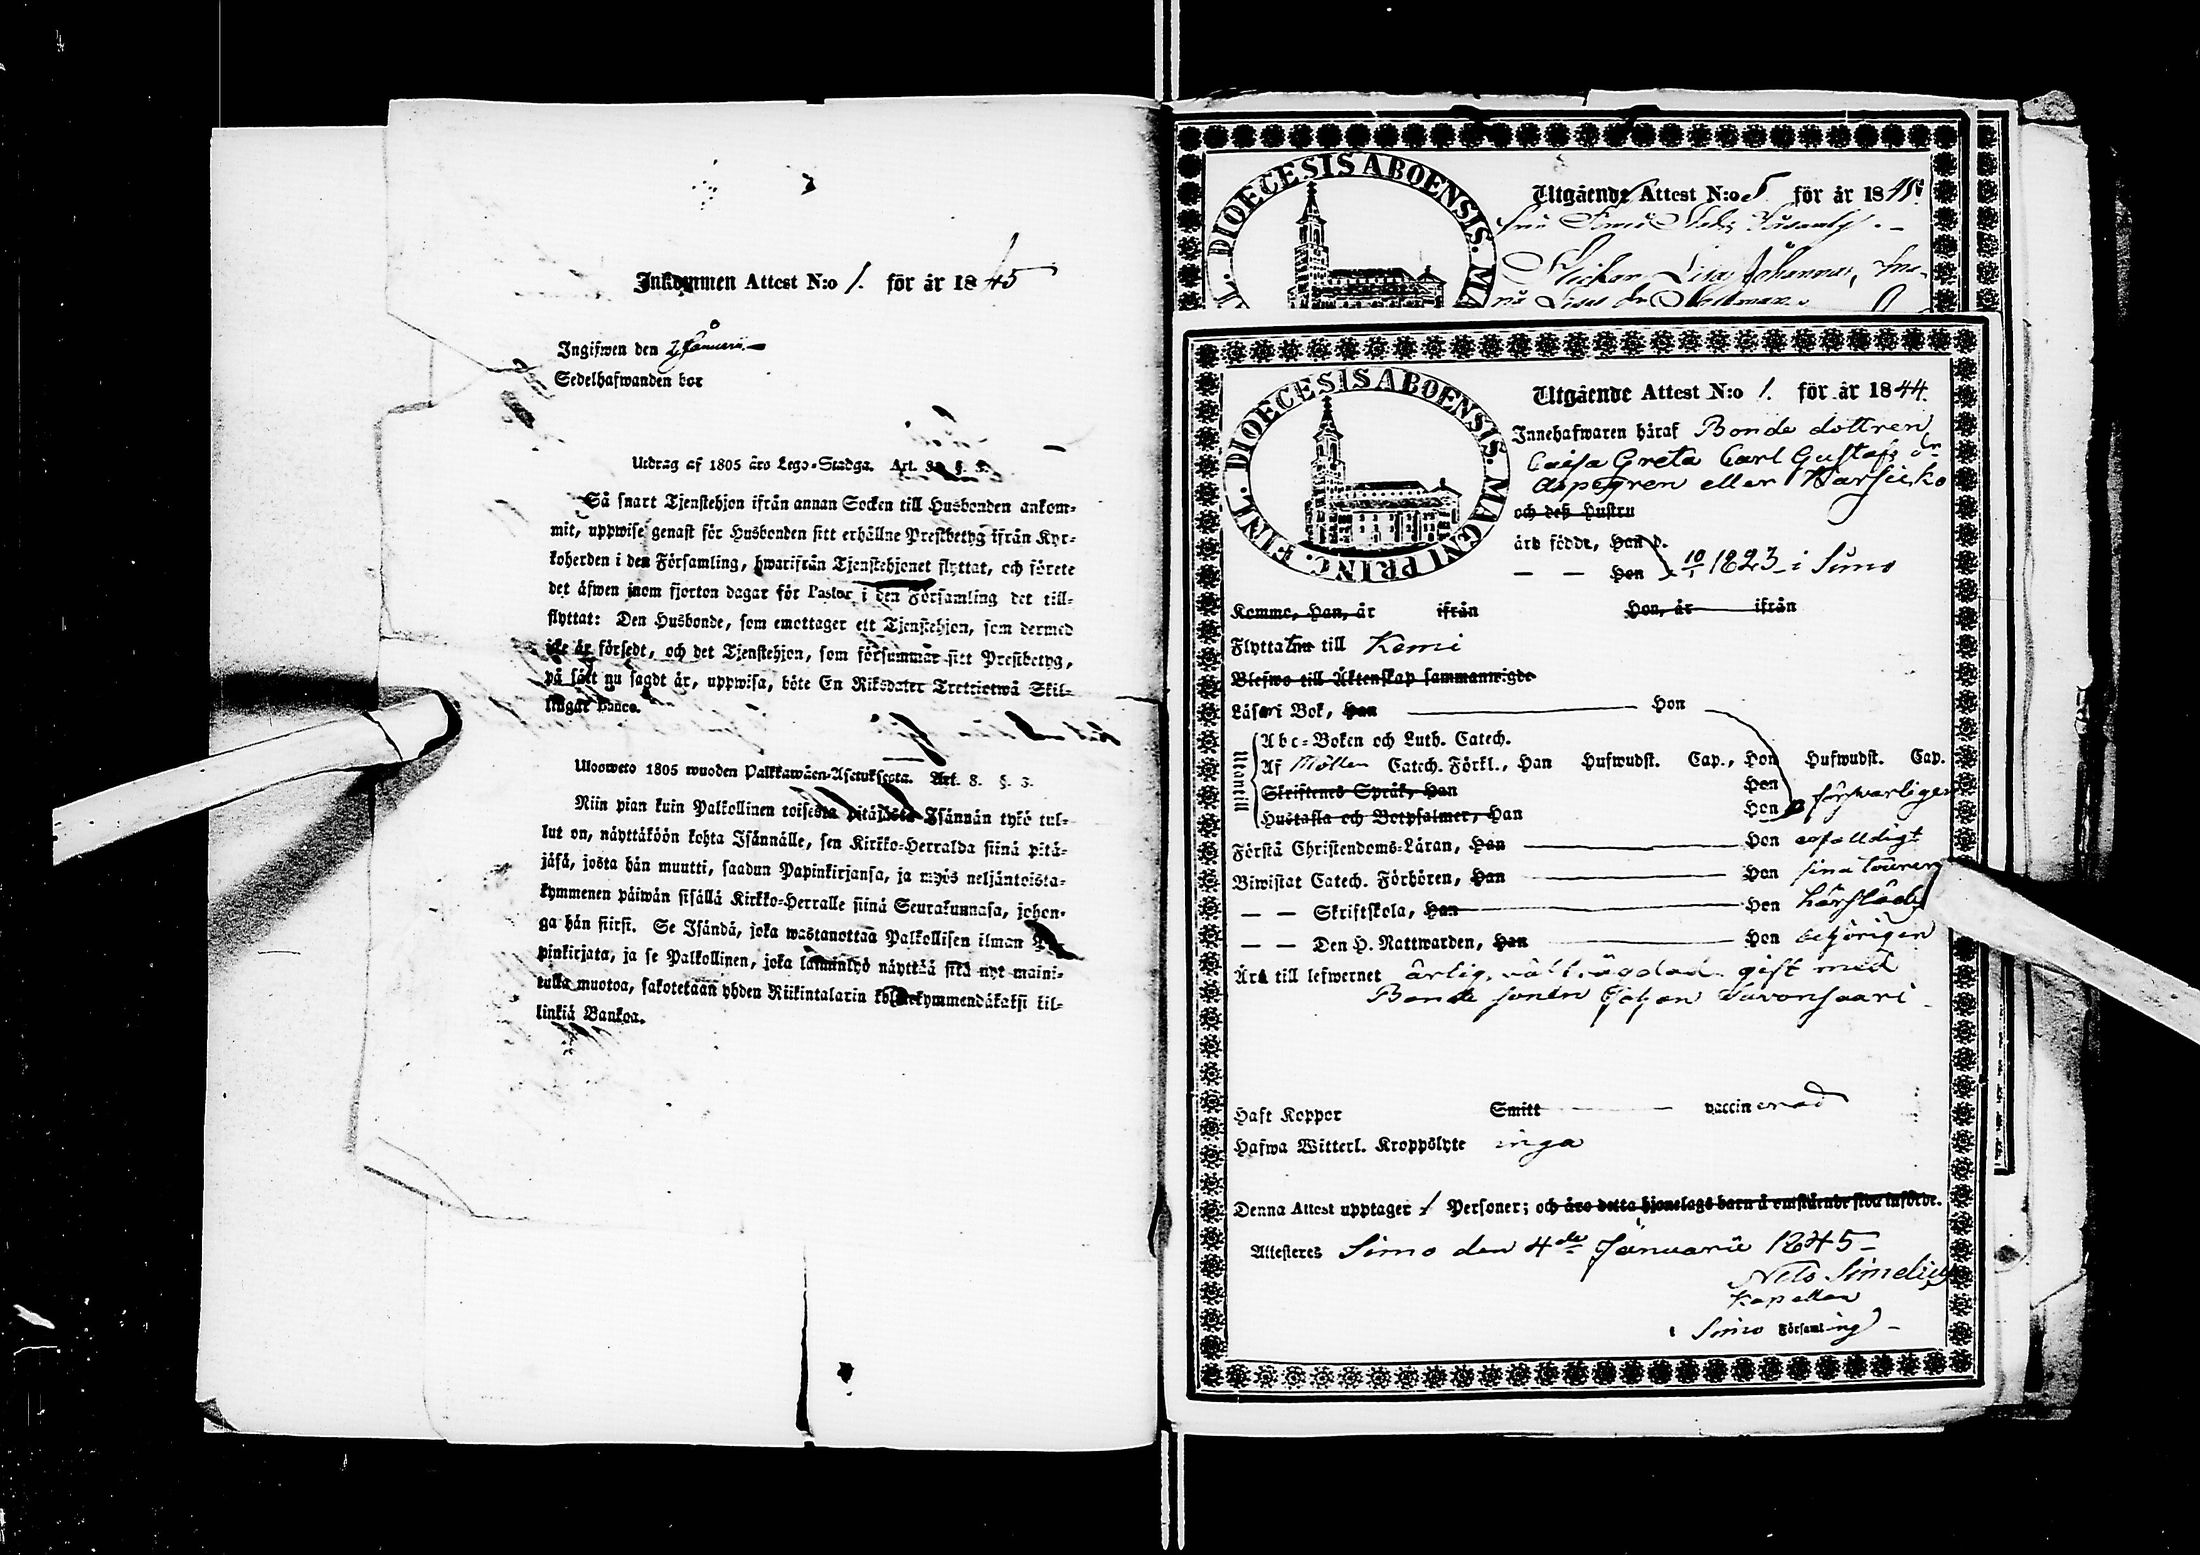 Inkommen Attest N:o 1. för år 1845
Ingifwen den 7 Januarii
Sedelhafwanden bor
Utdrag af 1805 års Lego-Stadga. Art. 8. §. 3.
Så snart Tjenstehjon ifrån annan Socken till Husbonden ankom-
mit, uppwise genast för Husbonden sitt erhållne Prestbetyg ifrån Kyr-
koherden i den Församling, hwarifrån Tjenstehjonet flyttat, och förete
det äfwen inom fjorton dagar för Pastor i den Församling det till-
flyttat: Den Husbonde, som emottager ett Tjenstehjon, som dermed
icke är försedt, och det Tjenstehjon, som försummar sitt Prestbetyg,
på sätt nu sagdt är, uppwisa, böte En Riksdaler Trettiotwå Skil-
lingar Banco.
Ulosweto 1805 wuoden Palkkawäen-Asetuksesta. Art. 8. §. 3.
Niin pian kuin Palkollinen toisesta pitäjästä Isännän tykö tul-
lut on, näyttäköön kohta Isännälle, sen Kirkko-Herralda siinä pitä-
jäsä, josta hän muutti, saadun Papinkirjansa, ja myös neljäntoista-
kymmenen päiwän sisällä Kirkko-Herralle siinä Seurakunnasa, johon-
ga hän siirsi. Se Isändä, joka wastanottaa Palkollisen ilman Pa-
pinkirjata, ja se Palkollinen, joka laiminlyö näyttää sitä nyt maini-
tulla muotoa, sakotetaan yhden Riikintalarin kolmekymmendäkaksi kil-
linkiä Bankoa.
DIOECESIS ABOENSIS. MA
Utgående Attest N:o 5 för år 1845
DIOECESIS ABOENSIS. MAGNI PRINC. FINL.
Utgående Attest N:o 1. för år 1844.
Innehafwaren häraf Bonde dottren
Caisa Greta Carl Gustafs dr
Aspegren eller Karsicko
och deß Hustru
äro födde, Han d.
— — Hon d. 10/1 1823 i Simo
Komme, Han, år ifrån Hon, år ifrån
Flytta till Kemi
Blefwo till Äktenskap sammanwigde
Läser i Bok, Han Hon
Utantill
Abc-Boken och Luth. Catech.
Af Möllers Catech. Förkl., Han Hufwudst. Cap., Hon Hufwudst. Cap.
Skriftenes Språk, Han Hon försvarligen
Hustafla och Botpsalmer, Han Hon
Förstå Christendoms-Läran, Han Hon enfalldigt
Biwistat Catech. Förhören, Han Hon sina
— — Skriftskola, Han Hon härstädes
— — Den H. Nattwarden, Han Hon behörigen
Äro till lefwernet ärlig, gift med
Bonde sonen Johan Savonsaari
Haft Koppor Smitt vaccinerad
Hafwa Witterl. Kroppslyte inga
Denna Attest upptager 1 Personer; och äro detta hjonelags barn å omstående sida införde.
Attesteres Simo den 4de Januarii 1845
Nils Simelius
Kapellan
i Simo Församling